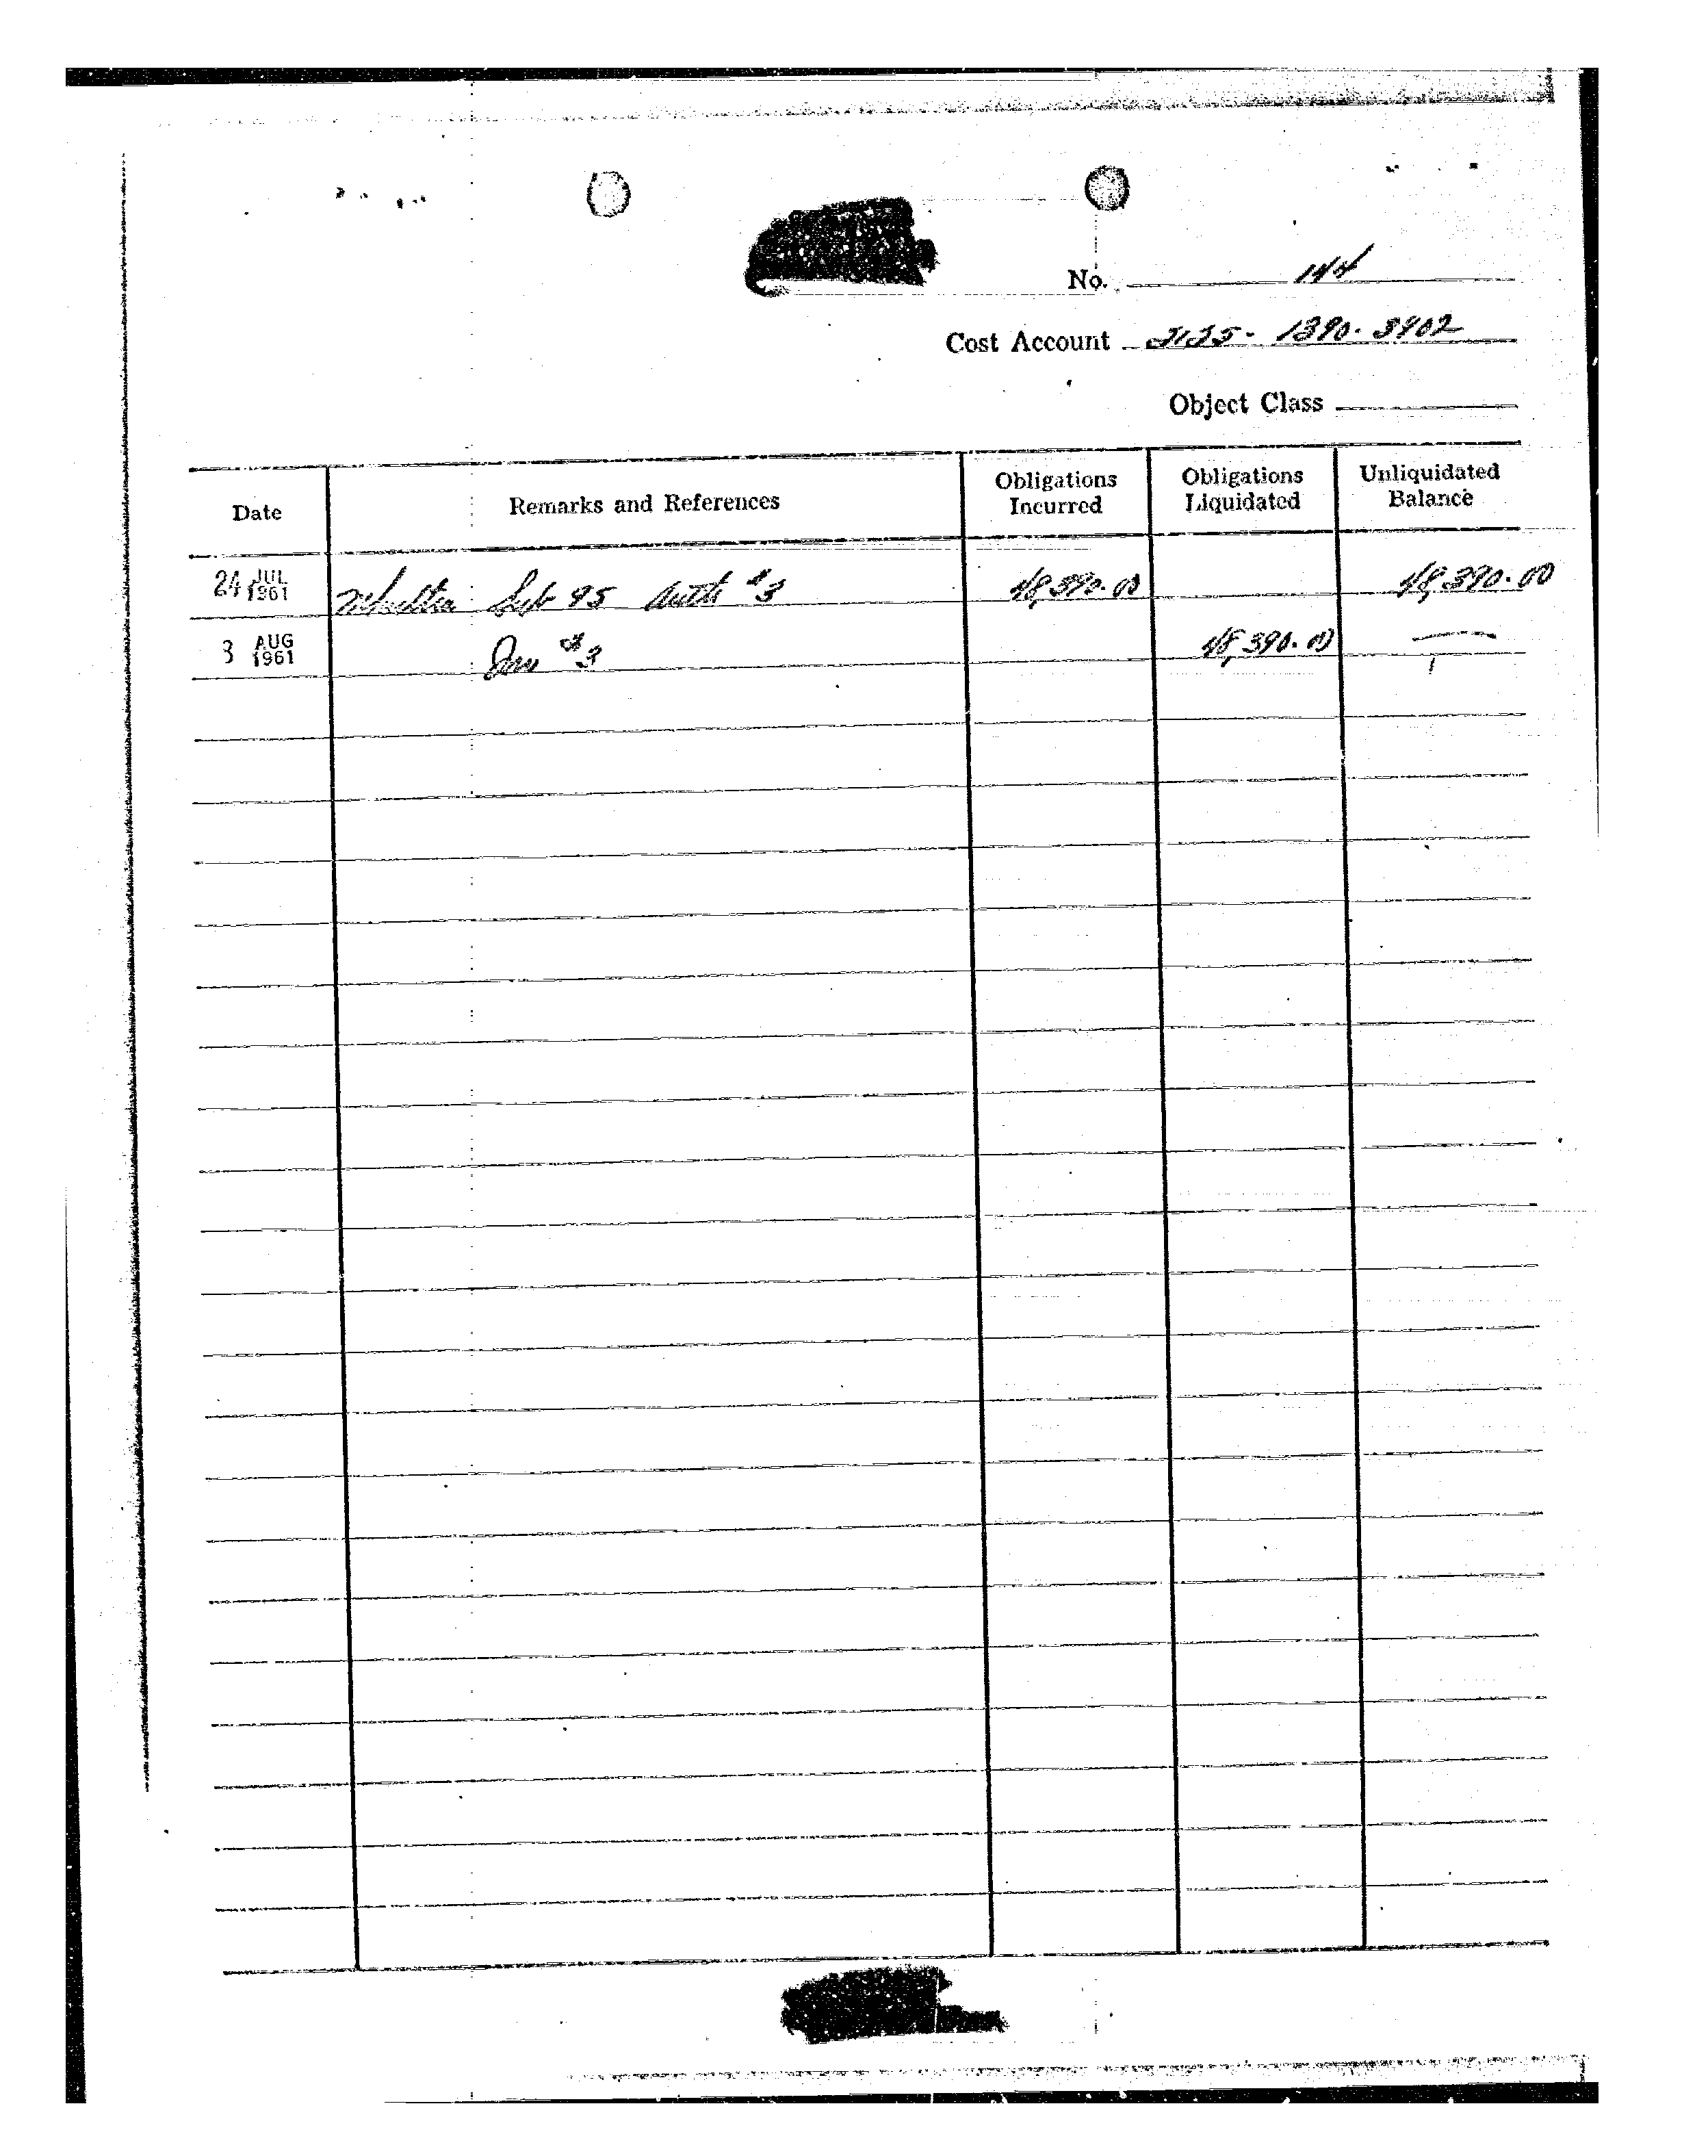 No. 144
Cost Account 2125-1390-3902
Object Class
Date Remarks and References Obligations Incurred Obligations Liquidated Unliquidated Balance
24 JUL 1961 Mkultra Sub 95 Auth #3 48,390.00 48,390.00
3 AUG 1961 Inv #3 48,390.00 —